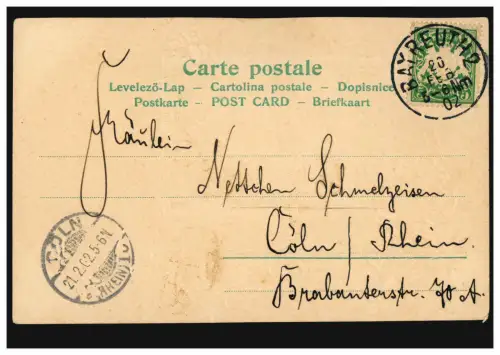 BAYREUTH 2
20
FEB
02
Carte postale
Levelező-Lap – Cartolina postale – Dopisnice
Postkarte – POST CARD – Briefkaart
Fräulein
Nettchen Schmelzeisen
Cöln / Rhein.
Brabanterstr. 70 A.
CÖLN
21.2.02.5-6N.
(RHEIN) 1